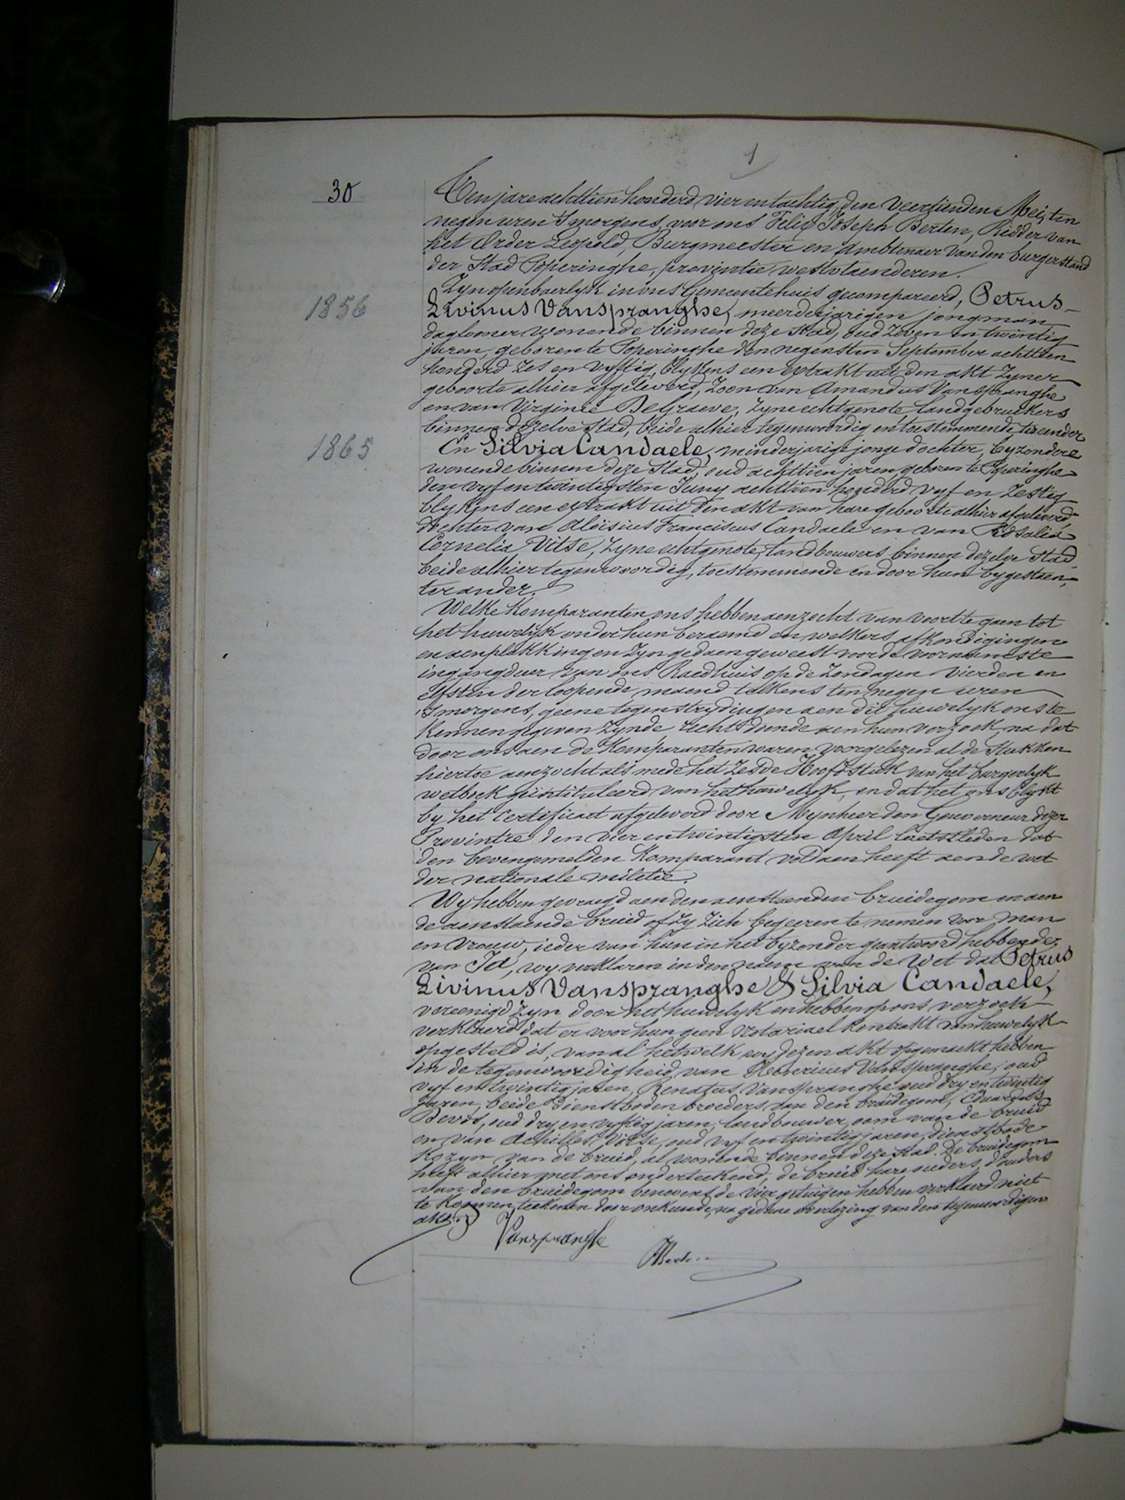 1
30
Ten jare achttien honderd vier en tachtig, den veertienden Mei, ten
negen uren s'morgens, voor ons Felix Joseph Berten, Ridder van
het Order Leopold, Burgmeester en Ambtenaer van den burgerstand
der Stad Poperinghe, provintie westvlaenderen.
Zyn openbaerlyk in ons Gemeentehuis gecompareerd, Petrus
1856
Livinus Vanspranghe, meerderjarigen jongman
daglooner wonende binnen deze Stad, oud zeven en twintig
jaren, geboren te Poperinghe den negensten September achttien
honderd zes en vyftig, blykens een extrakt uit den akt zyner
geboorte alhier afgeleverd, zoon van Amandus Vanspranghe
en van Virginie DeGraeve, zyne echtgenote landgebruikers
binnen dezelve stad, beide alhier tegenwoordig en toestemmende, ter ander
1865
En Silvia Candaele, minderjarige jonge dochter, byzondere
wonende binnen deze Stad, oud achttien jaren geboren te Poperinghe
den vyf en twintigsten Juny achttien honderd vyf en zestig
blykens een extrakt uit den akt van hare geboorte alhier afgeleverd
Dochter van Aloisius Franciscus Candaele en van Rosalia
Cornelia Vitse, zyne echtgenote, landbouwers binnen dezelve Stad
beide alhier tegenwoordig, toestemmende en door hun bygestaen,
ter ander.
Welke Komparanten ons hebben aenzocht van voort te gaen tot
het huwelyk onder hun beraemd en welkers afkondigingen
en aenplakkingen zyn gedaen geweest voor de voornaemste
ingangdeur van ons Raedhuis op de zondagen vierden en
elfsten der loopende maend telkens ten negen uren
s'morgens, geene tegenstrydingen aen dit huwelyk ons te
kennen gegeven zynde, recht doende aen hun verzoek, na dat
door ons aen de Komparanten waren voorgelezen al de stukken
hiertoe aenzocht als mede het zesde Hoofdstuk van het burgerlyk
wetboek geintituleerd van het huwelyk, en dat het ons blykt
by het certificaet afgeleverd door Mynheer den Gouverneur dezer
Provintie den vier en twintigsten April laetstleden dat
den bovengemelden Komparant voldaen heeft aen de wet
der nationale militie.
Wy hebben gevraegd aen den aenstaenden bruidegom en aen
de aenstaende bruid of zy zich begeeren te nemen voor man
en vrouw, ieder van hun in het byzonder geantwoord hebbende
van Ja, wy verklaren in den naem van de Wet dat Petrus
Livinus Vanspranghe & Silvia Candaele,
vereenigd zyn door het huwelyk en hebben op ons verzoek
verklaerd dat er voor hun geen Notariael kontrakt van huwelyk
opgesteld is, van al hetwelk wy dezen akt opgemaekt hebben
in de tegenwoordigheid van Henricus Vanspranghe, oud
vyf en twintig jaren, Renatus Vanspranghe oud dry en twintig
jaren, beide dienstboden broeders van den bruidegom,
oud dry en vyftig jaren, landbouwer, oom van de bruid
en van Achilles Vitse, oud vyf en twintig jaren, dienstbode
Kozyn van de bruid, al wonende binnen deze stad. De bruidegom
heeft alhier met ons onderteekend, de bruid hare ouders, d'ouders
van den bruidegom benevens de vier getuigen hebben verklaerd niet
te konnen teekenen door onkunde, na gedane voorlezing van den tegenwoordigen
akt.
Vanspranghe
Berten